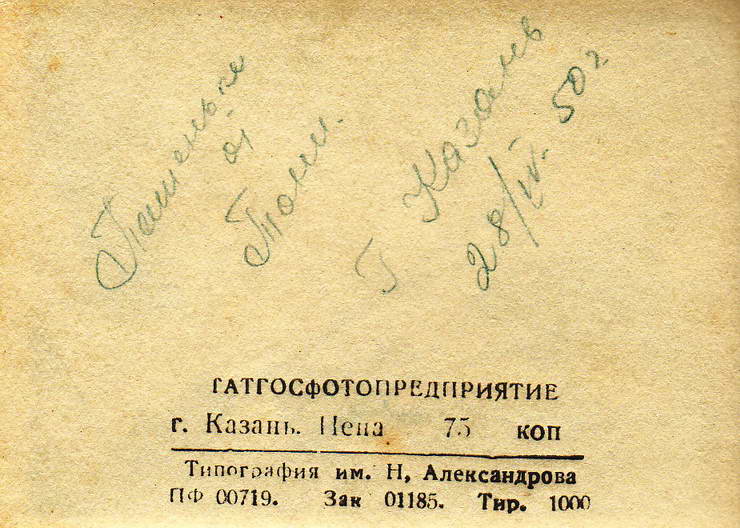 Пашеньке
от
Тони.
Г Казань
28/IV. 50 г
ТАТГОСФОТОПРЕДПРИЯТИЕ
г. Казань. Цена 75 коп
Типография им. Н, Александрова
ПФ 00719. Зак 01185. Тир. 1000